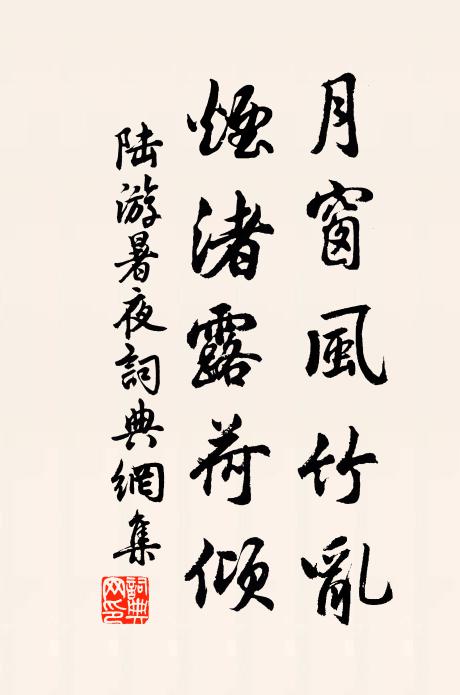 月窗風竹亂
煙渚露荷傾
陆游暑夜詞典網集
詞典
网印